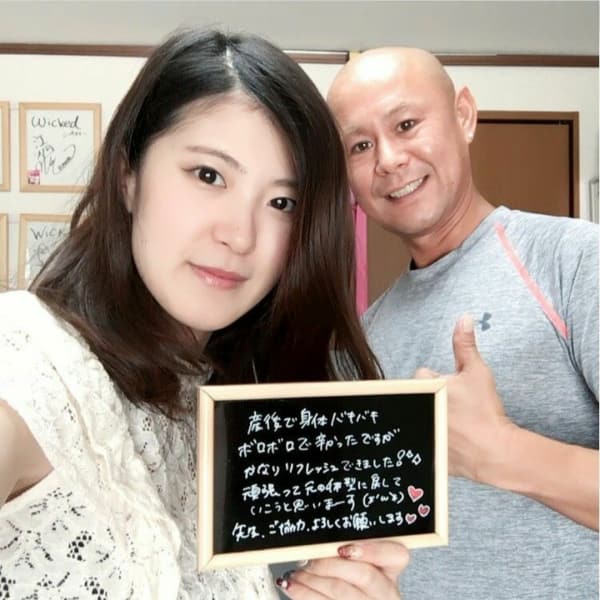 Wicked
Wick
産後で身体バキバキ
ボロボロで辛かったですが
かなりリフレッシュできました!
頑張って元の体型に戻して
いこうと思いまーす(*'ω'*)
先生、ご協力、よろしくお願いします